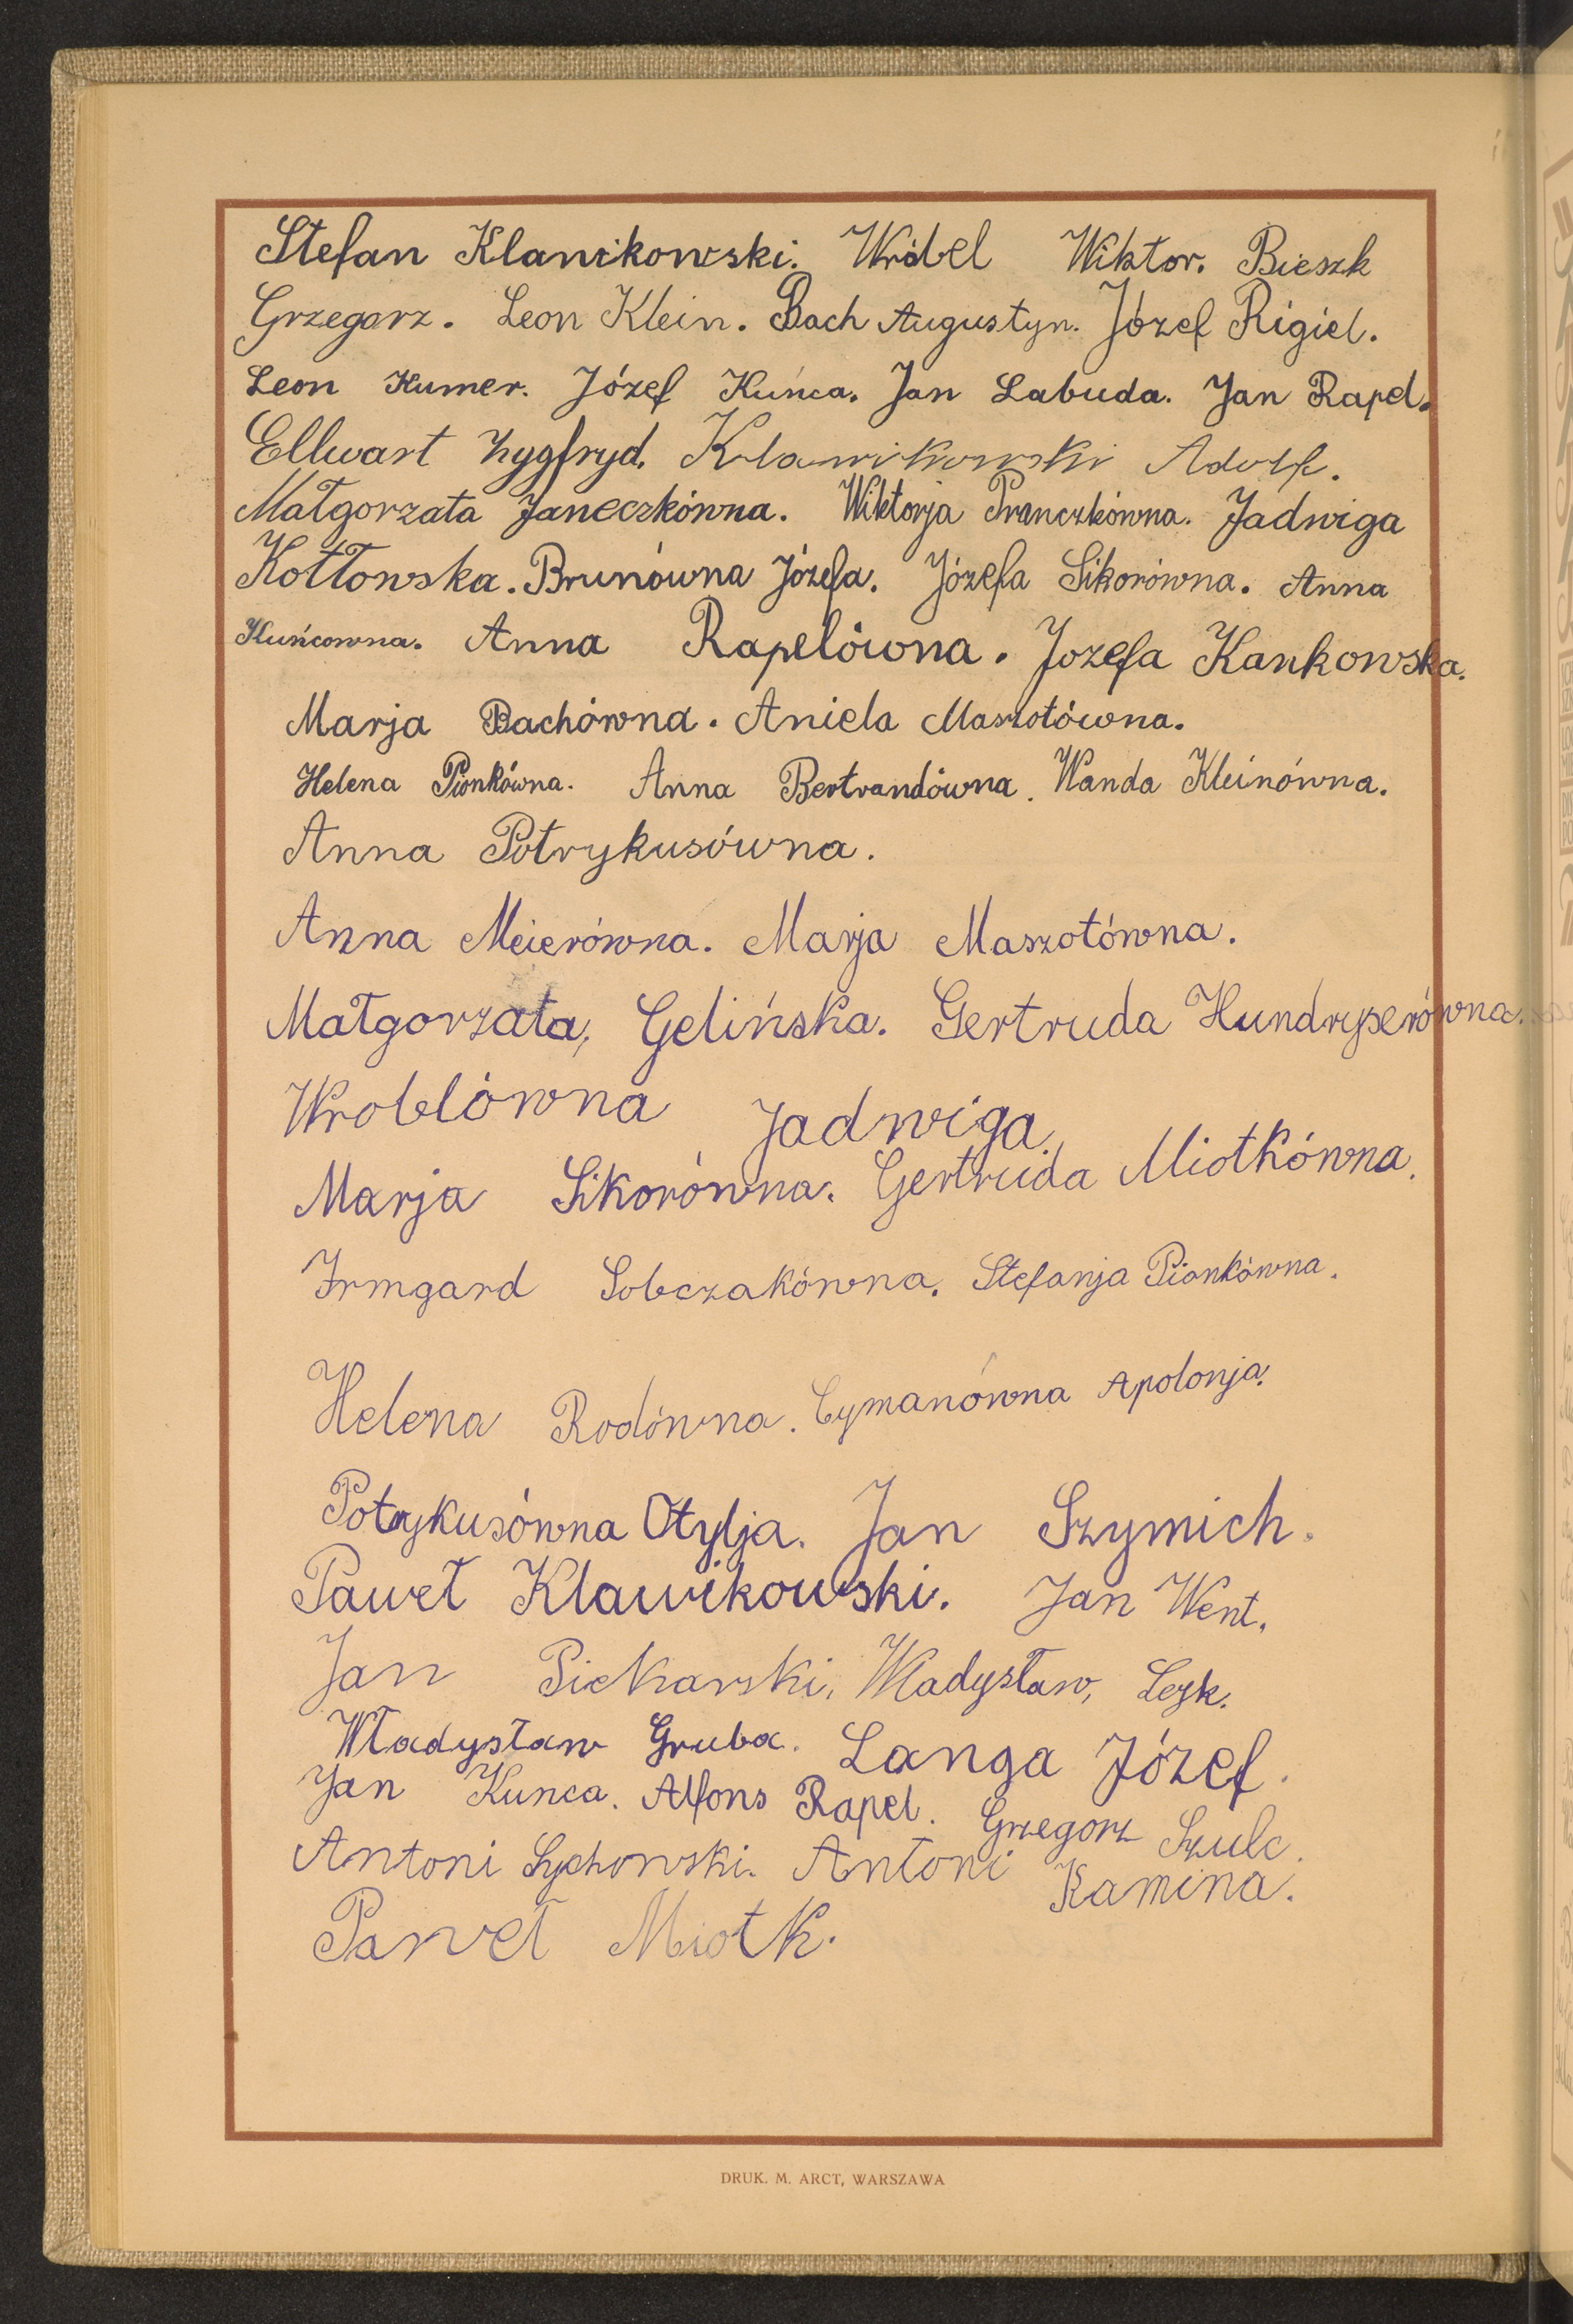 Stefan Klawikowski. Wróbel Wiktor. Bieszk
Grzegorz. Leon Klein. Bach Augustyn. Józef Rigiel.
Leon Kumer. Józef Kuńca. Jan Labuda. Jan Rapel.
Ellwart Zygfryd. Klawikowski Adolf.
Małgorzata Janeczkówna. Wiktorja Pranczkówna. Jadwiga
Kotłowska. Brunówna Józefa. Józefa Sikorówna. Anna
Kuńcowna. Anna Rapelówna. Jozefa Kankowska.
Marja Bachówna. Aniela Maszotówna.
Helena Pionkówna. Anna Bertrandówna. Wanda Kleinówna.
Anna Potrykusówna.
Anna Meierówna. Marja Maszotówna.
Małgorzata, Gelińska. Gertruda Hundryserówna.
Wroblówna Jadwiga.
Marja Sikorówna. Gertruda Miotkówna.
Irmgard Sobczakówna. Stefanja Pionkówna.
Helena Rodówna. Cymanówna Apolonja.
Potrykusówna Otylja. Jan Szymich.
Paweł Klawikowski. Jan Went.
Jan Piekarski, Władysław, Lezk.
Władysław Gruba. Langa Józef.
Jan Kunca. Alfons Rapel. Grzegorz Szulc.
Antoni Sychowski. Antoni Kamina.
Paweł Miotk.
DRUK. M. ARCT, WARSZAWA